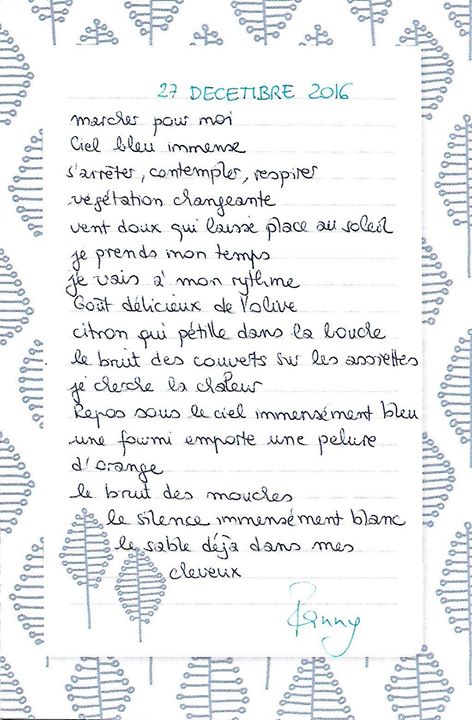 27 DECEMBRE 2016
marcher pour moi
Ciel bleu immense
s'arrêter, contempler, respirer
végétation changeante
vent doux qui laisse place au soleil
je prends mon temps
je vais à mon rythme
Goût délicieux de l'olive
citron qui pétille dans la bouche
le bruit des couverts sur les assiettes
je cherche la chaleur
Repos sous le ciel immensément bleu
une fourmi emporte une pelure
d'orange
le bruit des mouches
le silence immensément blanc
le sable déjà dans mes
cheveux
Fanny